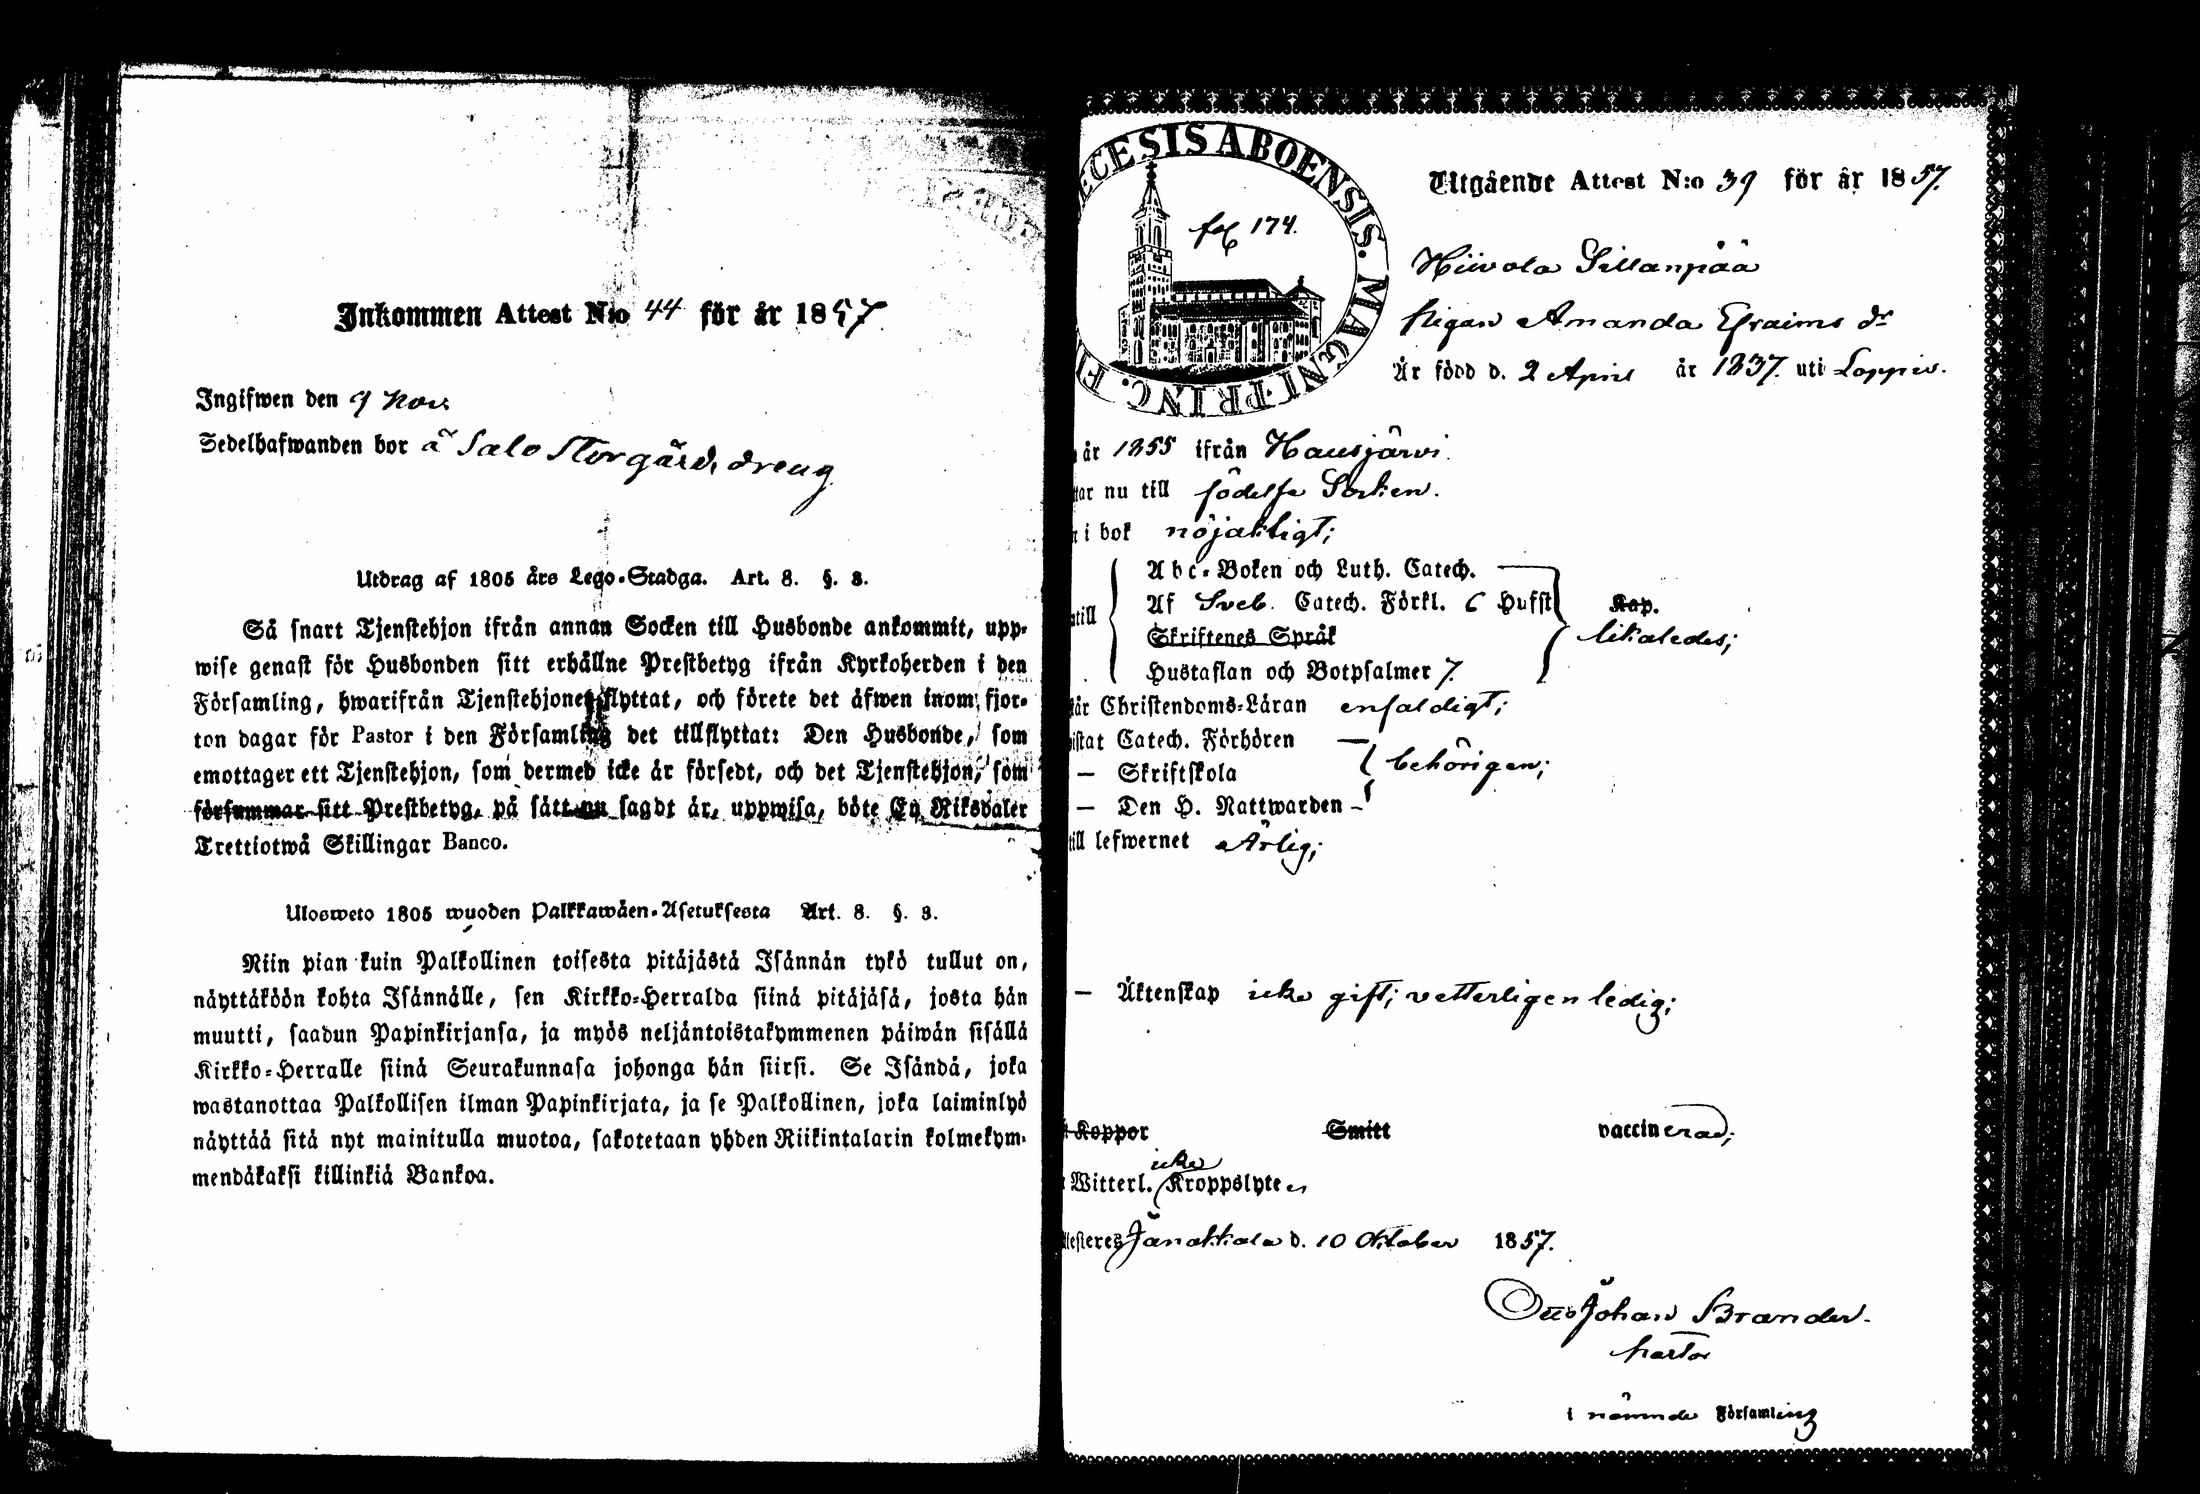 Inkommen Attest N:o 44 för år 1857
Ingifwen den 9 Nov.
Sedelhafwanden bor å Salo Storgård, dreng
Utdrag af 1805 års Lego-Stadga. Art. 8. §. 3.
Så snart Tjenstehjon ifrån annan Socken till Husbonde ankommit, upp-
wise genast för Husbonden sitt erhållne Prestbetyg ifrån Kyrkoherden i den
Församling, hwarifrån Tjenstehjonet flyttat, och förete det äfwen inom fjor-
ton dagar för Pastor i den Församling det tillflyttat: Den Husbonde, som
emottager ett Tjenstehjon, som dermed icke är försedt, och det Tjenstehjon, som
försummar sitt Prestbetyg, på sätt nu sagdt är, uppwisa, böte En Riksdaler
Trettiotwå Skillingar Banco.
Ulosweto 1805 wuoden Palkkawäen-Asetuksesta Art. 8. §. 3.
Niin pian kuin Palkollinen toisesta pitäjästä Isännän tykö tullut on,
näyttäköön kohta Isännälle, sen Kirkko-Herralda siinä pitäjäsä, josta hän
muutti, saadun Papinkirjansa, ja myös neljäntoistakymmenen päiwän sisällä
Kirkko-Herralle siinä Seurakunnasa johonga hän siirsi. Se Isändä, joka
wastanottaa Palkollisen ilman Papinkirjata, ja se Palkollinen, joka laiminlyö
näyttää sitä nyt mainitulla muotoa, sakotetaan yhden Riikintalarin kolmekym-
mendäkaksi killinkiä Bankoa.
ECESIS ABOENSIS. MAGNI PRINC. F
fol 174.
Utgående Attest N:o 39 för år 1857.
Hiivola Sillanpää
Pigan Amanda Efraims dr
Är född d. 2 April år 1837. uti Loppis.
år 1855 ifrån Hausjärvi.
tar nu till födelse Socken.
i bok nöjaktigt;
Abc-Boken och Luth. Catech.
till Af Sveb. Catech. Förkl. 6 Hufst Kap.
Skriftenes Språk likaledes;
Hustaflan och Botpsalmer 7.
tår Christendoms-Läran enfaldigt;
istat Catech. Förhören
— Skriftskola behörigen;
— Den H. Nattwarden
till lefwernet Ärlig;
— Äktenskap icke gift; vetterligen ledig;
Koppor Smitt vaccinerad;
icke
Witterl. Kroppslyte
testeres Janakkala d. 10 Oktober 1857.
Otto Johan Brander.
Pastor
i nämnde Församling